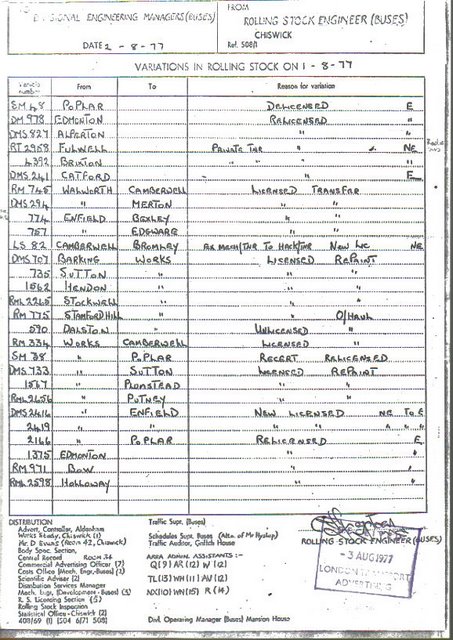 DIVISIONAL ENGINEERING MANAGERS (BUSES)
DATE 2 - 8 - 77
FROM
ROLLING STOCK ENGINEER (BUSES)
CHISWICK
Ref. 508/1
VARIATIONS IN ROLLING STOCK ON 1 - 8 - 77
Vehicle number From To Reason for variation
SM 48 POPLAR DELICENSED E
DM 978 EDMONTON RELICENSED "
DMS 827 ALPERTON " "
RT 2958 FULWELL PRIVATE THR " NE
4392 BRIXTON " " " "
DMS 241 CATFORD " E
RM 745 WALWORTH CAMBERWELL LICENSED TRANSFER
DMS 294 " MERTON " "
774 ENFIELD BEXLEY " "
757 " EDGWARE " "
LS 82 CAMBERWELL BROMLEY NEW LIC NE
DMS 707 BARKING WORKS LICENSED REPAINT
735 SUTTON " " "
1562 HENDON " " "
RML 2265 STOCKWELL " " "
RM 775 STAMFORD HILL " " O/HAUL
590 DALSTON " UNLICENSED "
RM 334 WORKS CAMBERWELL LICENSED "
SM 38 " POPLAR RECERT RELICENSED
DMS 733 " SUTTON LICENSED REPAINT
1567 " PLUMSTEAD " "
RML 2656 " PUTNEY " "
DMS 2416 " ENFIELD NEW LICENSED NE TO E
2419 " " " " " " "
2166 " POPLAR RELICENSED E
1375 EDMONTON " "
RM 971 BOW " "
RML 2598 HOLLOWAY " "
DISTRIBUTION
Advert. Controller, Aldenham
Works Ready, Chiswick (1)
Mr. D Evans (Room 42, Chiswick)
Body Spec. Section,
Central Record Room 36
Commercial Advertising Officer (7)
Costs Office (Mech. Engr., Buses) (2)
Scientific Adviser (2)
Distribution Services Manager
Mech. Engr. (Development - Buses) (3)
R. S. Licensing Section (5)
Rolling Stock Inspection
Statistical Office - Chiswick (2)
408/69 (1) 504 6/71 508)
Traffic Supt. (Buses)
Schedules Supt. Buses (Attn. of Mr Hyslop)
Traffic Auditor, Griffith House
AREA ADMIN. ASSISTANTS :-
Q (9) AR (12) W (12)
TL (13) WH (11) AV (12)
NX (10) WN (15) R (14)
Divl. Operating Manager (Buses) Mansion House
ROLLING STOCK ENGINEER (BUSES)
- 3 AUG 1977
LONDON TRANSPORT
ADVERTISING